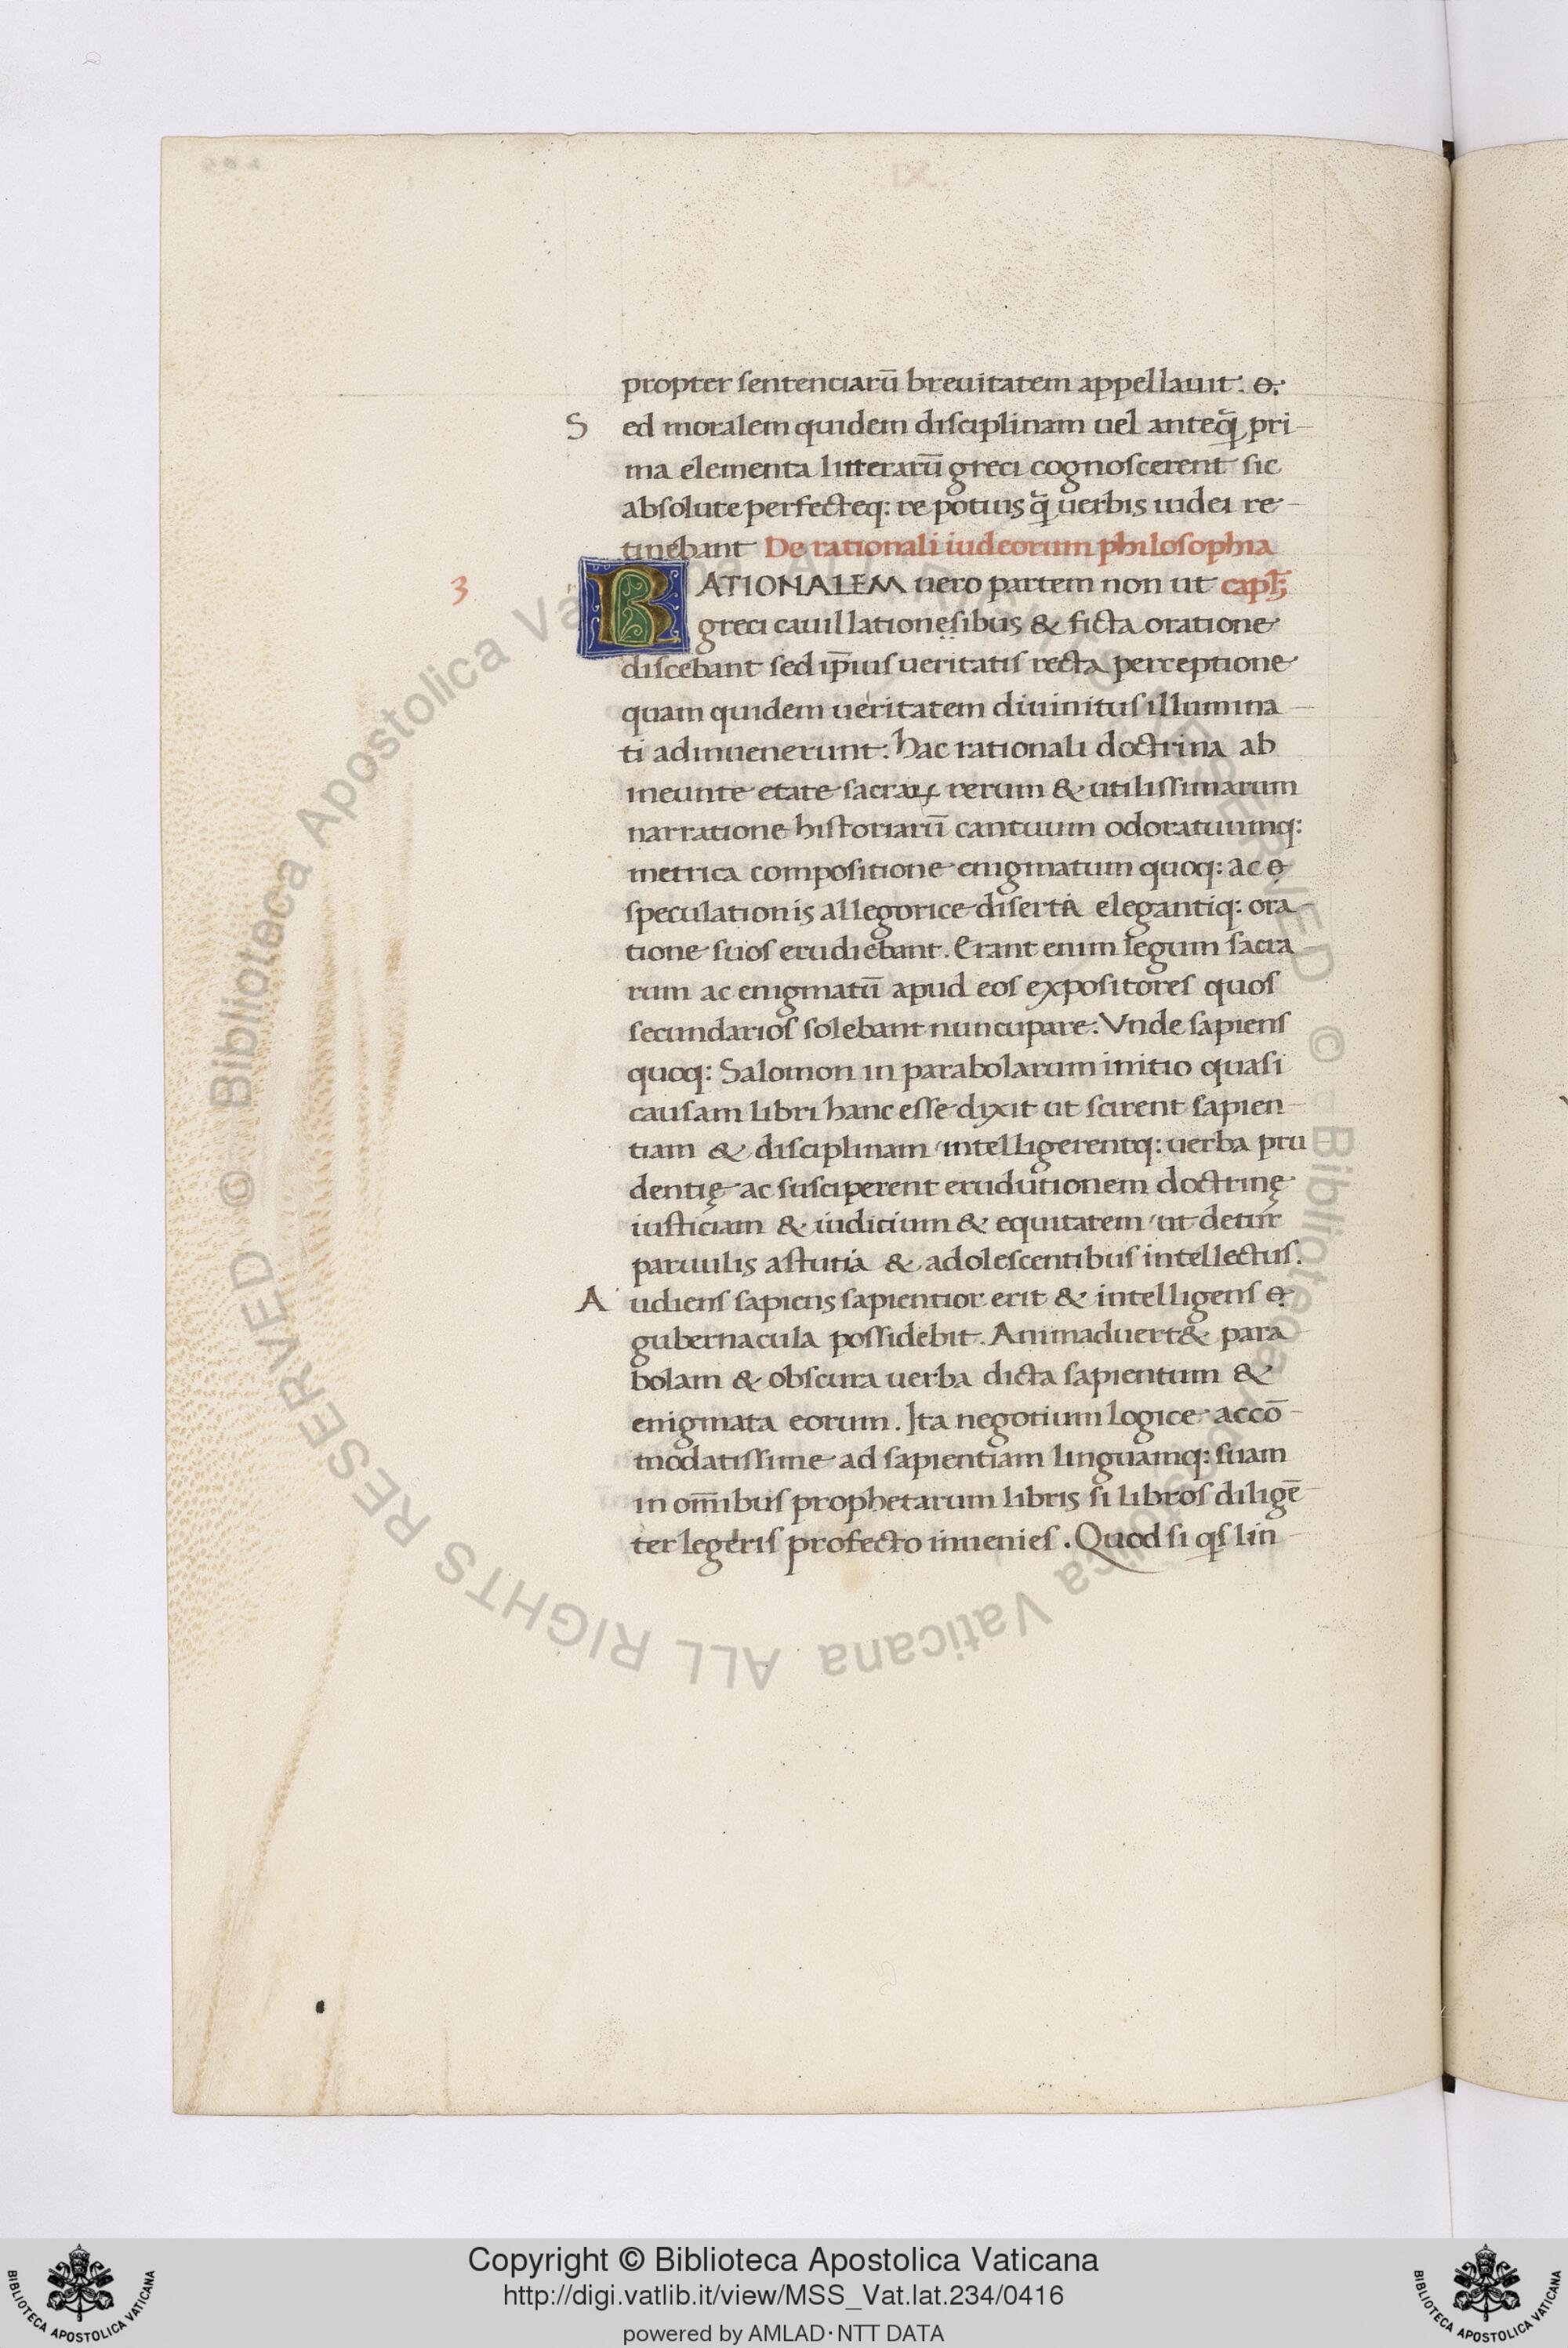 propter sentenciarū breuitatem appellauit.
Sed moralem quidem disciplinam uel anteq̄ pri-
ma elementa litterarū greci cognoscerent sic
absolute perfecteq: re potius q̄ uerbis iudei re-
tinebant De rationali iudeorum philosophia
3
RATIONALEM uero partem non ut
greci cauillationesibus & ficta oratione
discebant sed ip̄ius ueritatis recta perceptione
quam quidem ueritatem diuinitus illumina-
ti adinuenerunt. hac rationali doctrina ab
ineunte etate sacraꝝ rerum & utilissimarum
narratione historiarū cantuum odoratuumq:
metrica compositione enigmatum quoq: ac
speculationis allegorice diserta elegantiq: ora-
tione suos erudiebant. Erant enim legum sacra-
rum ac enigmatū apud eos expositores quos
secundarios solebant nuncupare. Vnde sapiens
quoq: Salomon in parabolarum initio quasi
causam libri hanc esse dixit ut scirent sapien-
tiam & disciplinam intelligerentq: uerba pru
dentię ac susciperent eruditionem doctrinę
iusticiam & iudicium & equitatem ut detur
paruulis astutia & adolescentibus intellectus.
Audiens sapiens sapientior erit & intelligens
gubernacula possidebit. Animaduert& para-
bolam & obscura uerba dicta sapientum &
enigmata eorum. Ita negotium logice accō-
modatissime ad sapientiam linguamq: suam
in om̄ibus prophetarum libris si libros diligē-
ter legeris profecto inuenies. Quod si qs lin-
Copyright © Biblioteca Apostolica Vaticana
http://digi.vatlib.it/view/MSS_Vat.lat.234/0416
powered by AMLAD·NTT DATA
BIBLIOTECA APOSTOLICA VATICANA
BIBLIOTECA APOSTOLICA VATICANA
© Biblioteca Apostolica Vaticana ALL RIGHTS RESERVED
© Biblioteca Apostolica Vaticana ALL RIGHTS RESERVED